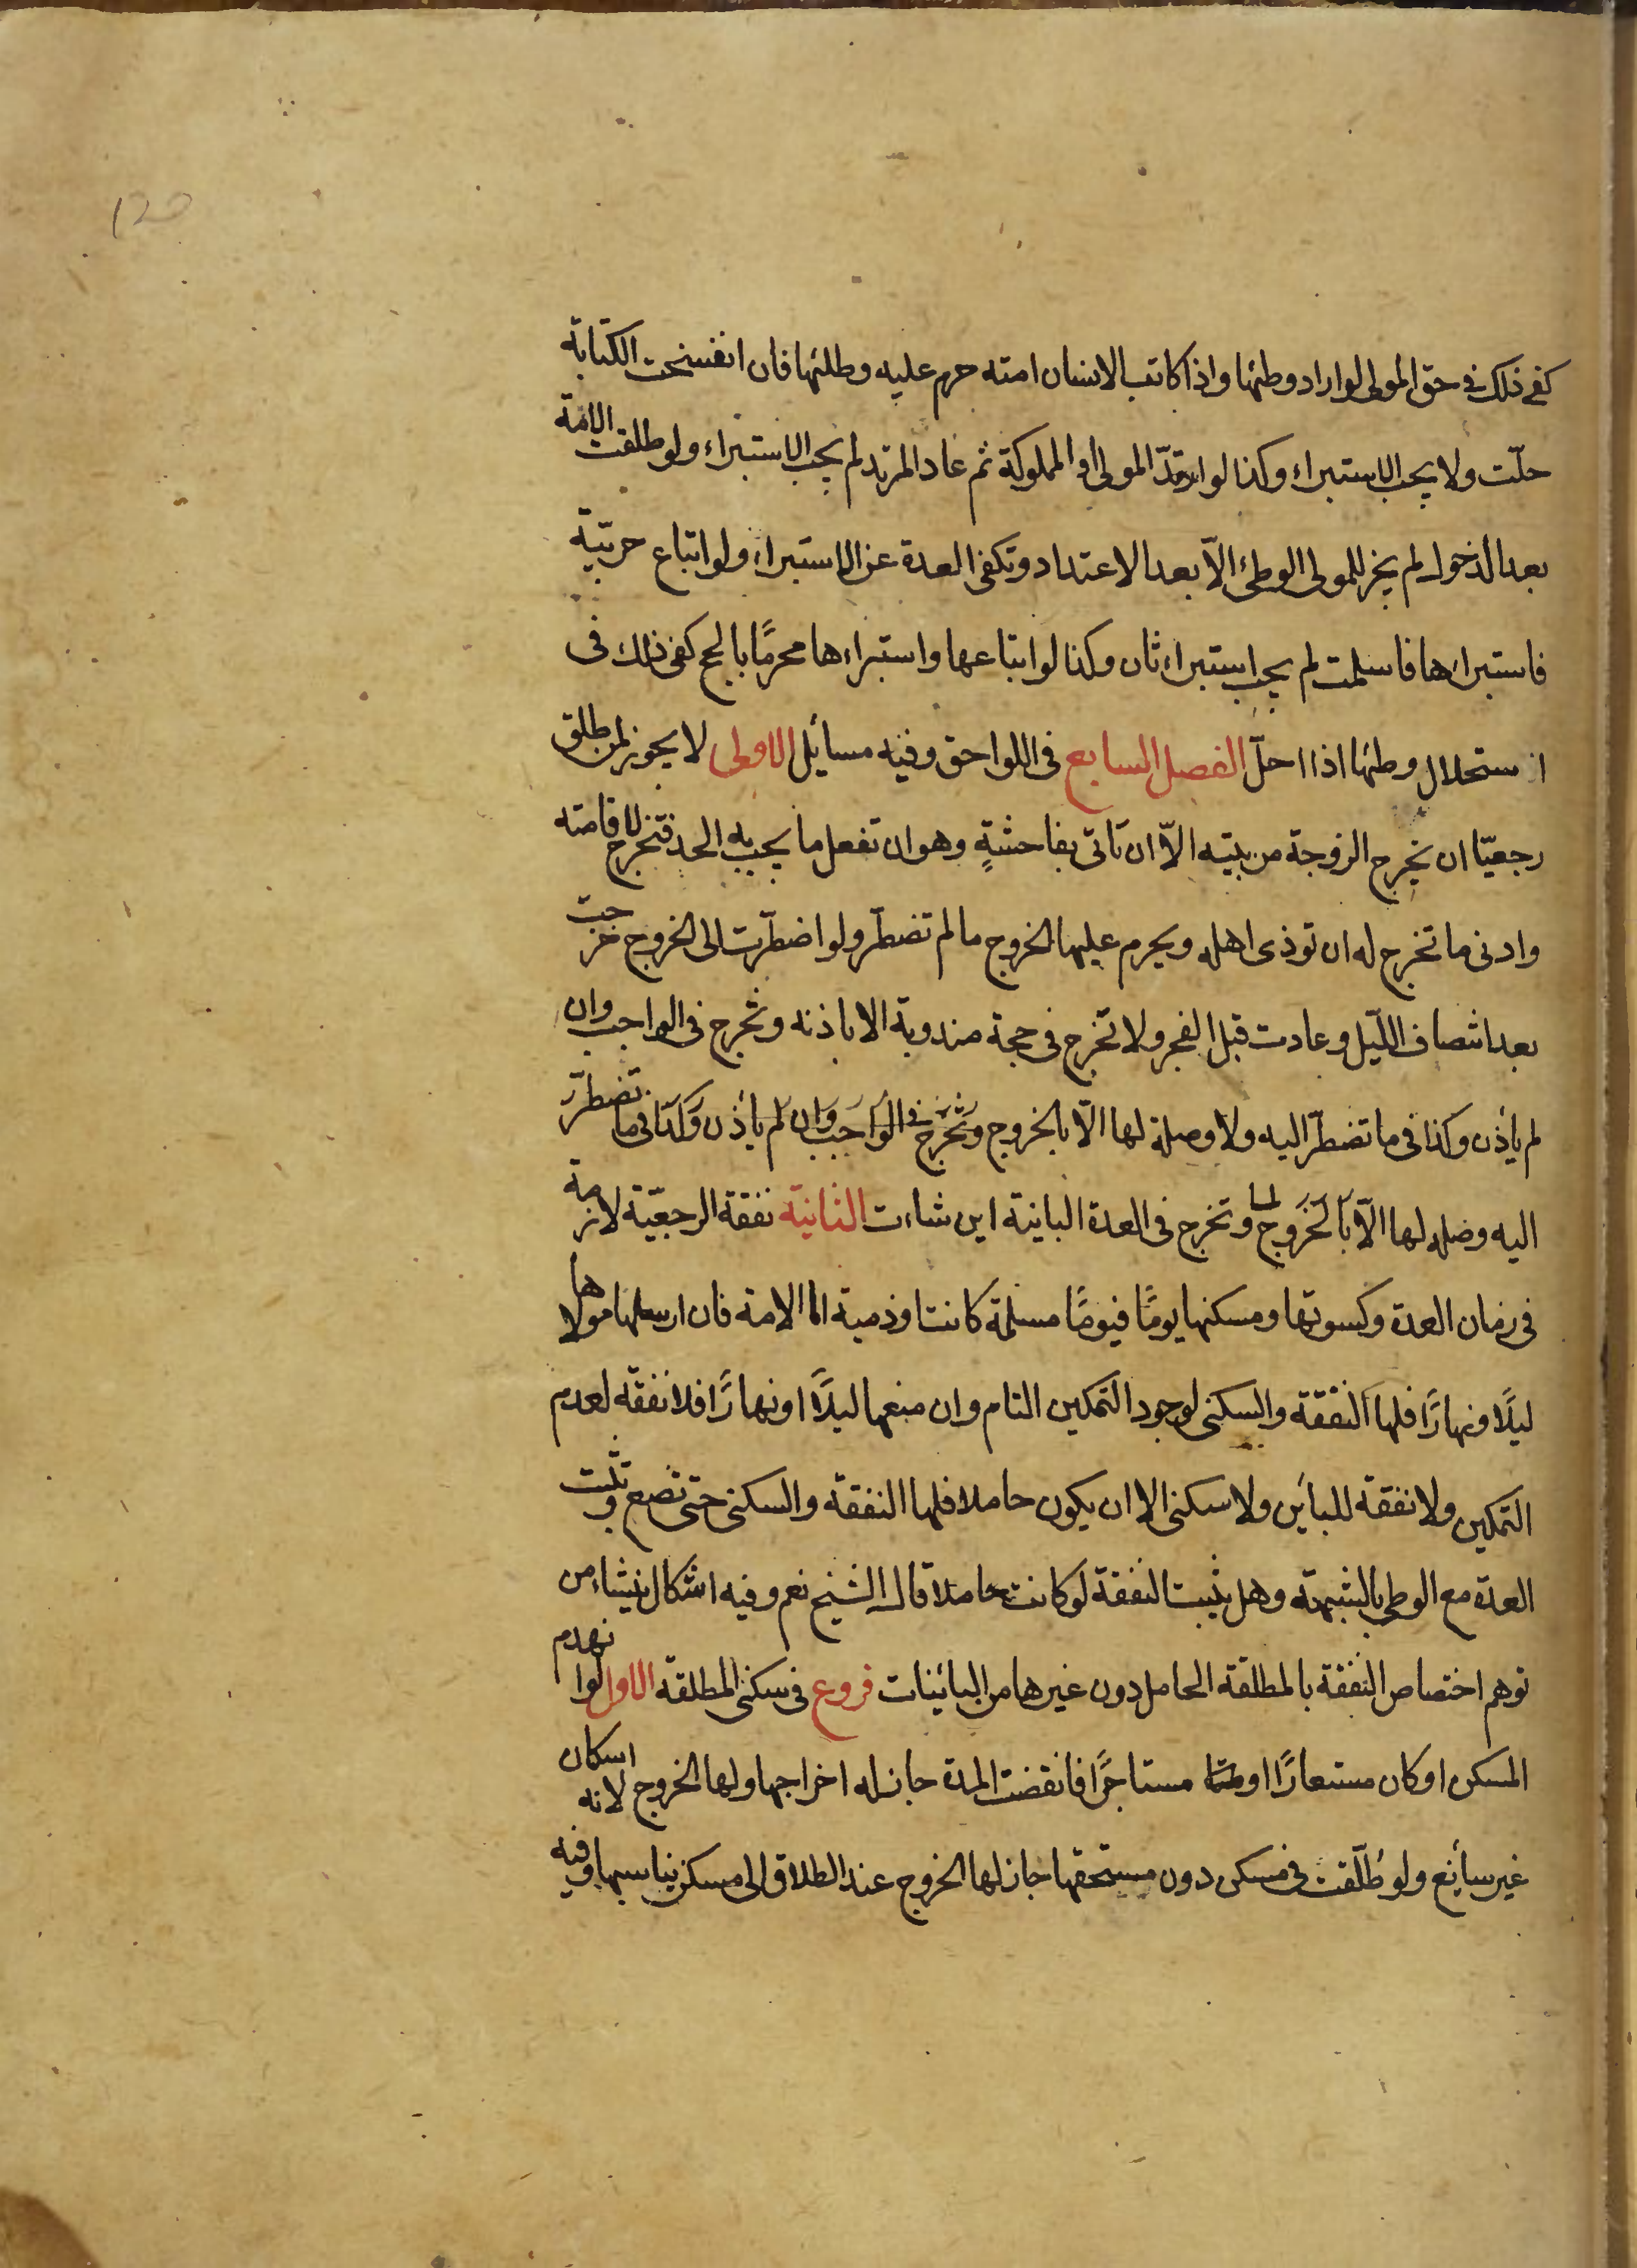 120
كفى ذلك فى حق المولى لو اراد وطئها واذا كاتب الانسان امته حرم عليه وطئها فان انفسخت الكتابة
حلّت ولا يجب الاستبراء وكذا لو ارتدّ المولى او المملوكة ثم عاد المرتد لم يجب الاستبراء ولو طلقت الامة
بعد الدخول لم يجز للمولى الوطئ الّا بعد الاعتداد وتكفى العدة عن الاستبراء ولو ابتاع حربيّة
فاستبراءها فاسلمت لم يجب استبراء ثان وكذا لو ابتاعها واستبراءها محرمًا بالحج كفى ذلك فى
استحلال وطئها اذا احلّ الفصل السابع فى اللواحق وفيه مسائل الاولى لا يجوز لمن طلق
رجعيّا ان يخرج الزوجة من بيته الّا ان تاتى بفاحشةٍ وهو ان تفعل ما يجب به الحد فتخرج لاقامته
وادنى ما تخرج له ان توذى اهله ويحرم عليها الخروج ما لم تضطرّ ولو اضطرّت الى الخروج خرجت
بعد انتصاف اللّيل وعادت قبل الفجر ولا تخرج فى حجة مندوبة الا باذنه وتخرج فى الواجب وان
لم يأذن وكذا فى ما تضطرّ اليه ولا وصلة لها الّا بالخروج وتخرج فى الواجب وان لم يأذن وكذا فى ما تضطرّ
اليه وصله لها الّا بالخروج وتخرج فى العدة البانية اين شاءت الثانيّة نفقة الرجعيّة لازمة
فى زمان العدة وكسوتها ومسكنها يومًا فيومًا مسلمة كانت او ذمية اما الامة فان ارسلها مولاها
ليلًا ونهارًا فلها النفقة والسكنى لوجود التمكين التام وان منعها ليلًا او نهارًا فلا نفقة لعدم
التمكين ولا نفقة للبائن ولا سكنى الا ان يكون حاملا فلها النفقة والسكنى حتى تضع وتثبت
العدة مع الوطى بالشبهة وهل يثبت النفقة لو كانت حاملا قال الشيخ نعم وفيه اشكال ينشاء من
توهم اختصاص النفقة بالمطلقة الحامل دون غيرها من البائنات فروع فى سكنى المطلقة الاول لو انهدم
المسكن او كان مستعارًا او مستاجرًا فانقضت المدة جاز له اخراجها ولها الخروج لانه اسكان
غير سائغ ولو طُلّقت فى مسكن دون مستحقها جاز لها الخروج عند الطلاق الى مسكن يناسبها وفيه